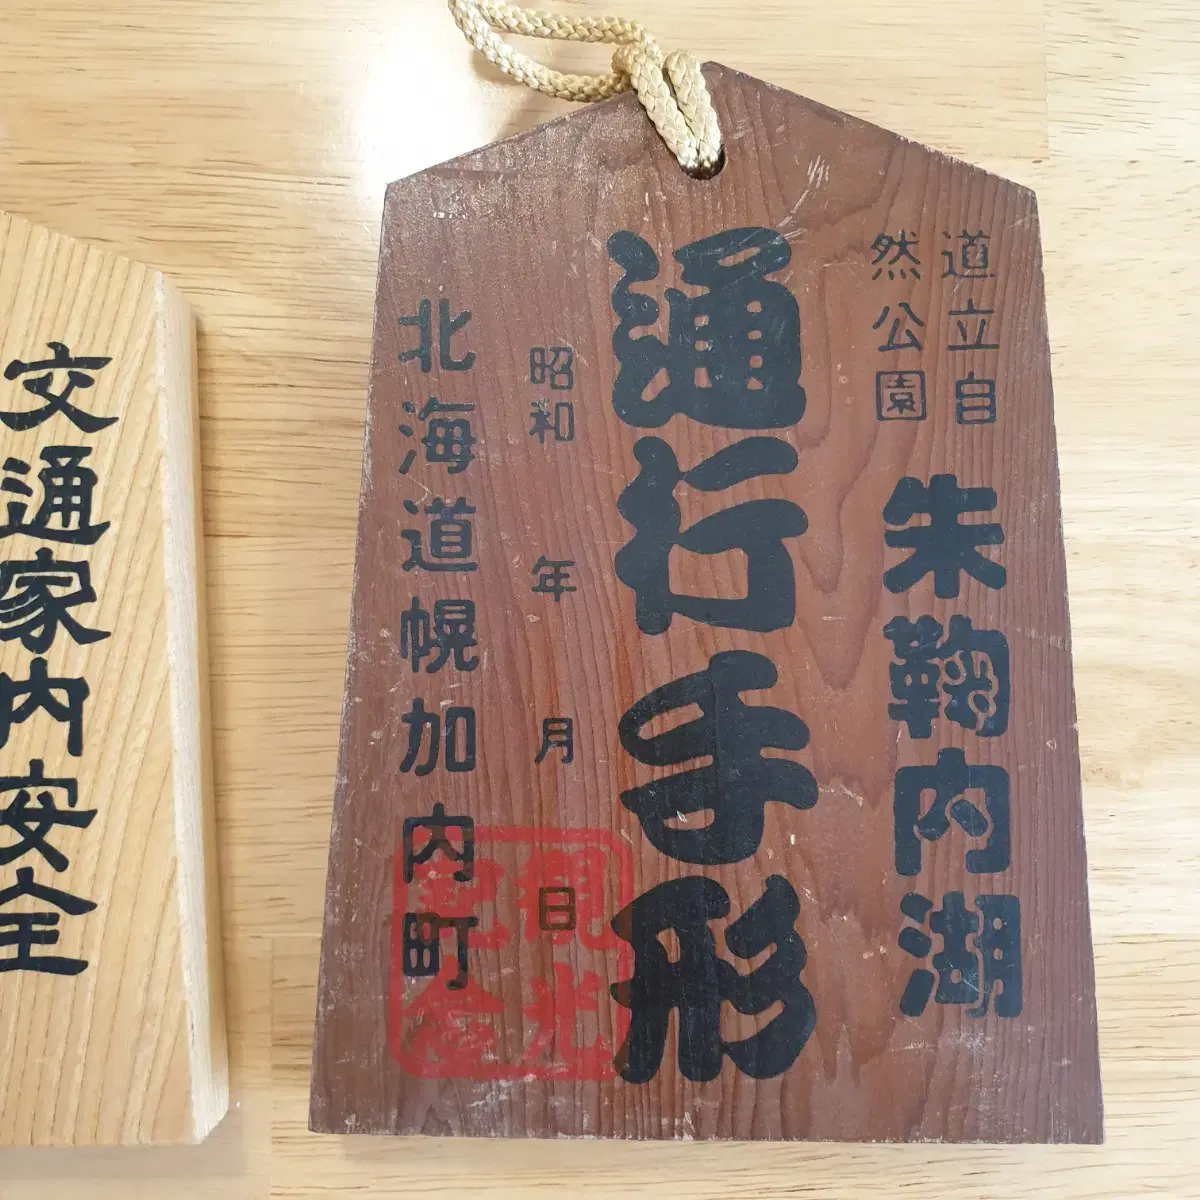 道立自
然公園
朱鞠内湖
通行手形
昭和 年 月 日
北海道幌加内町
観光
記念
交通家内安全